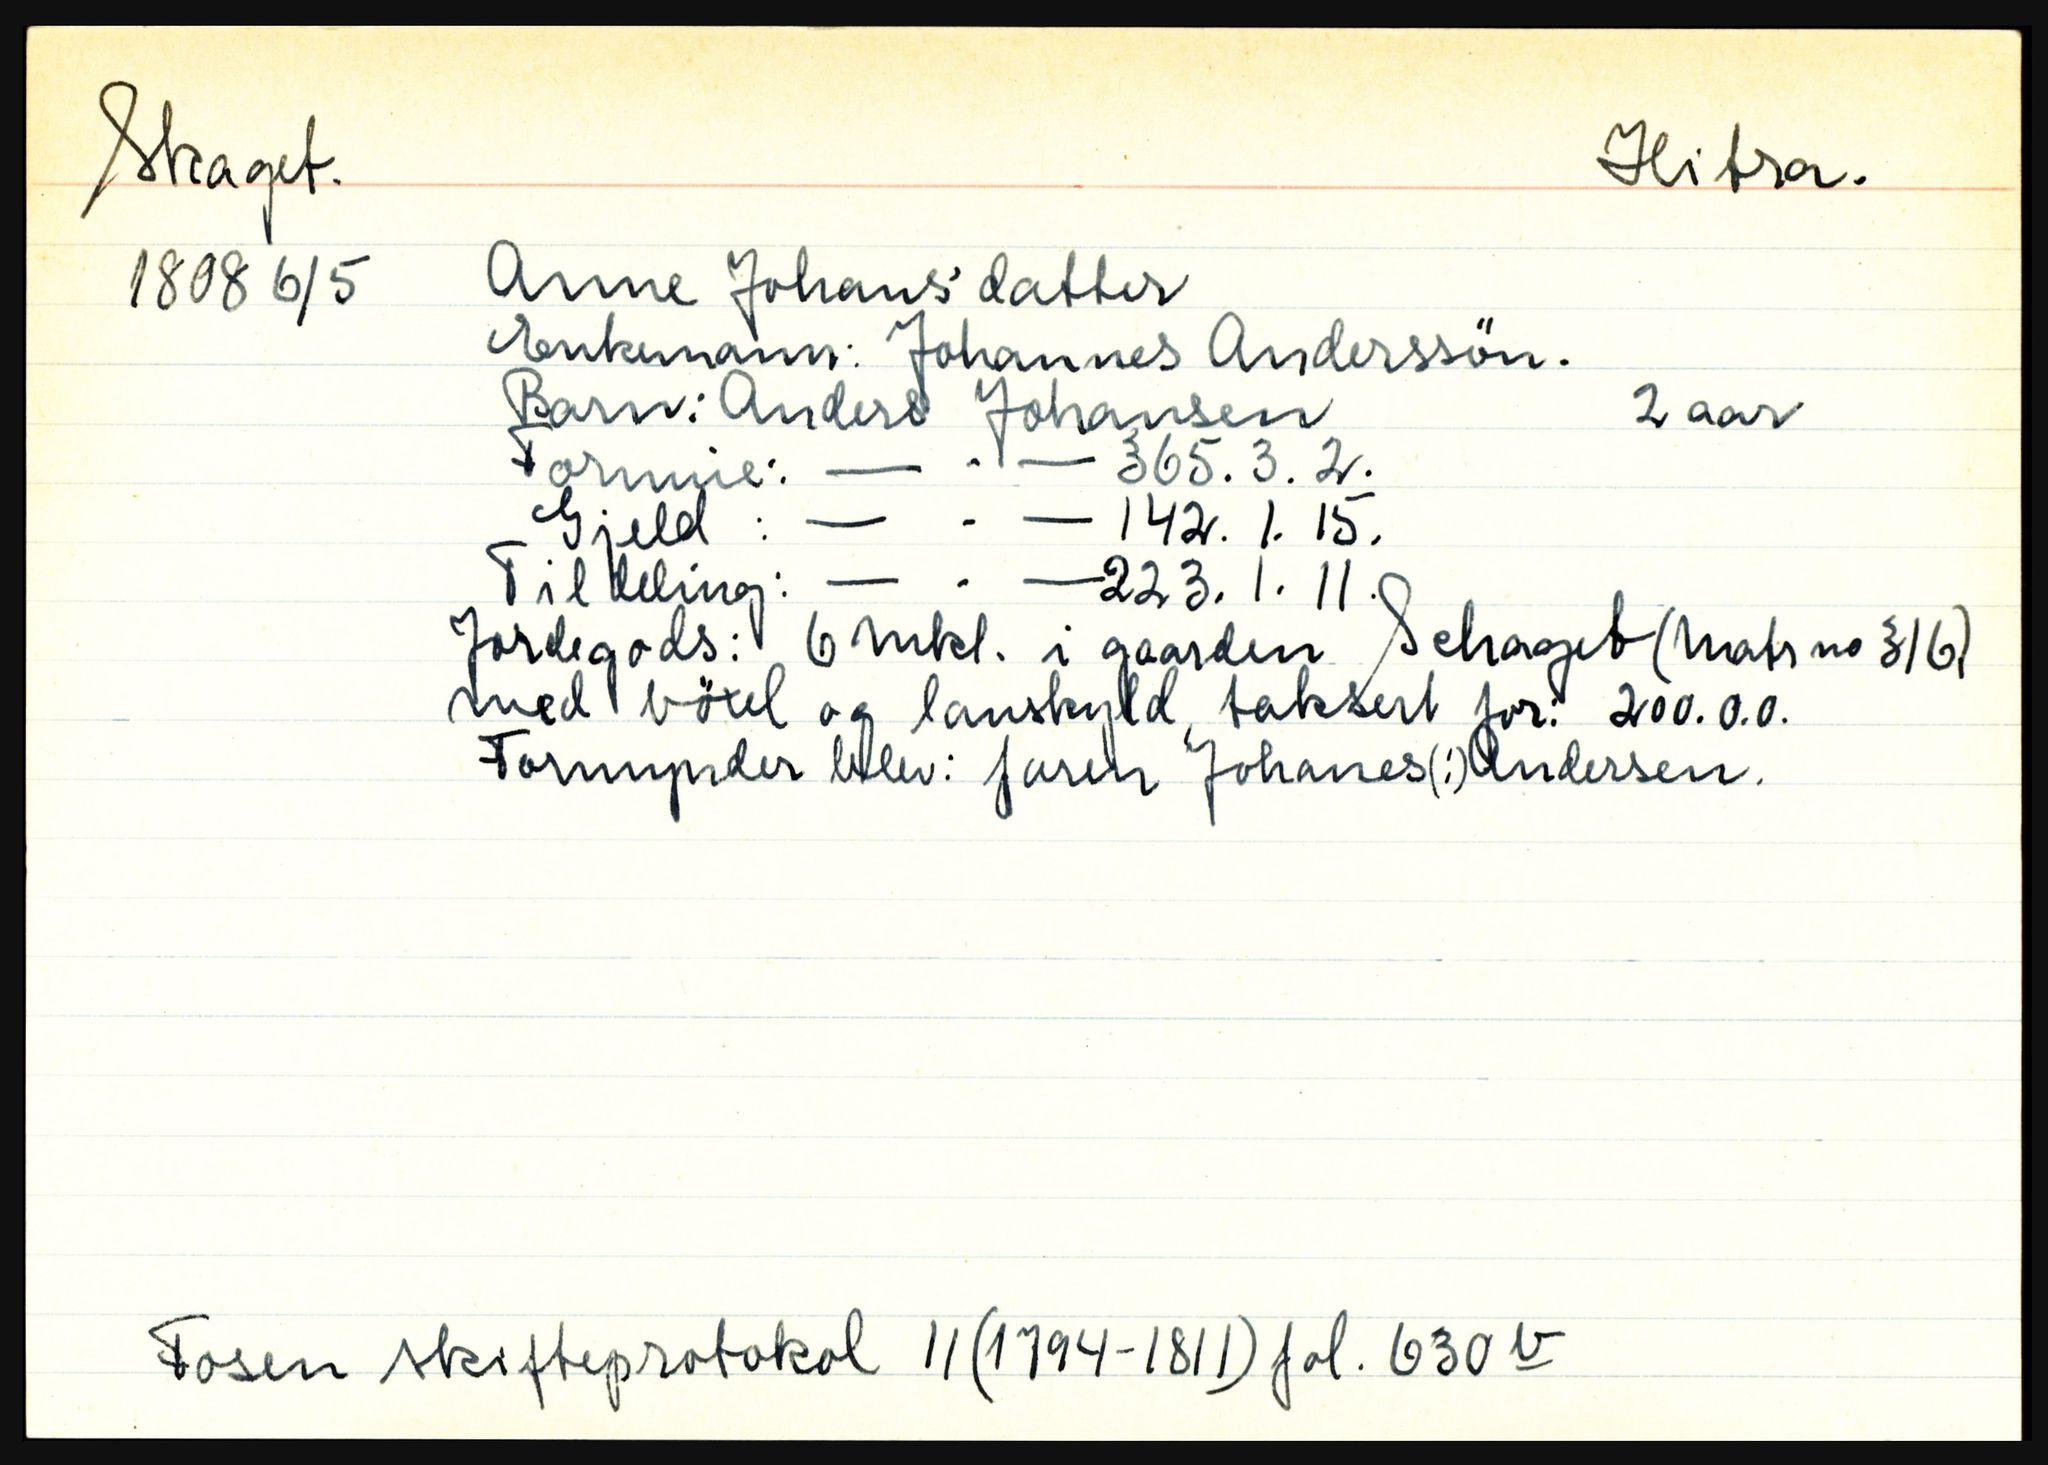 Skaget. Hitra.
1808 6/5 Anne Johansdatter
Enkemann: Johannes Anderssön.
Barn: Anders Johansen 2 aar
Formue: — - — 365. 3. 2.
Gjeld : — - — 142. 1. 15.
Tildeling: — - — 223. 1. 11.
Jordegods: 6 mkl. i gaarden Schaget (Matr no 316)
med böxel og lanskyld taksert for: 200.0.0.
Formynder blev: faren Johanes(:) Andersen.
Fosen skifteprotokol 11 (1794-1811) fol. 630 b